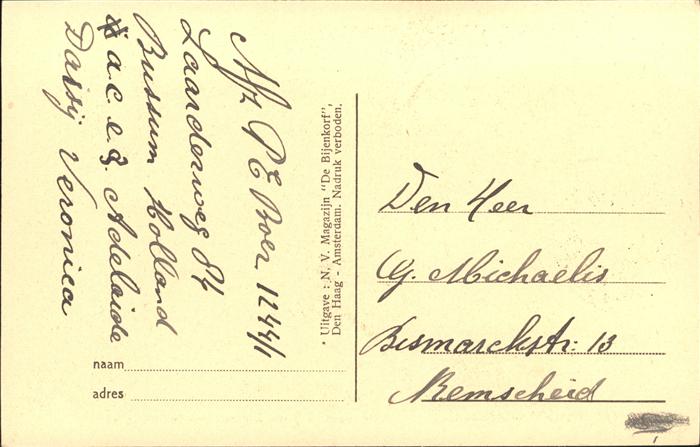 Afz P E Boer 1244/1
Laarderweg 84
Bussum Holland
a.c.e.g. Adelaide
Dassij Veronica
Uitgave : N. V. Magazijn "De Bijenkorf",
Den Haag - Amsterdam. Nadruk verboden.
Den Heer
G. Michaelis
Bismarckstr: 13
Remscheid
naam
adres